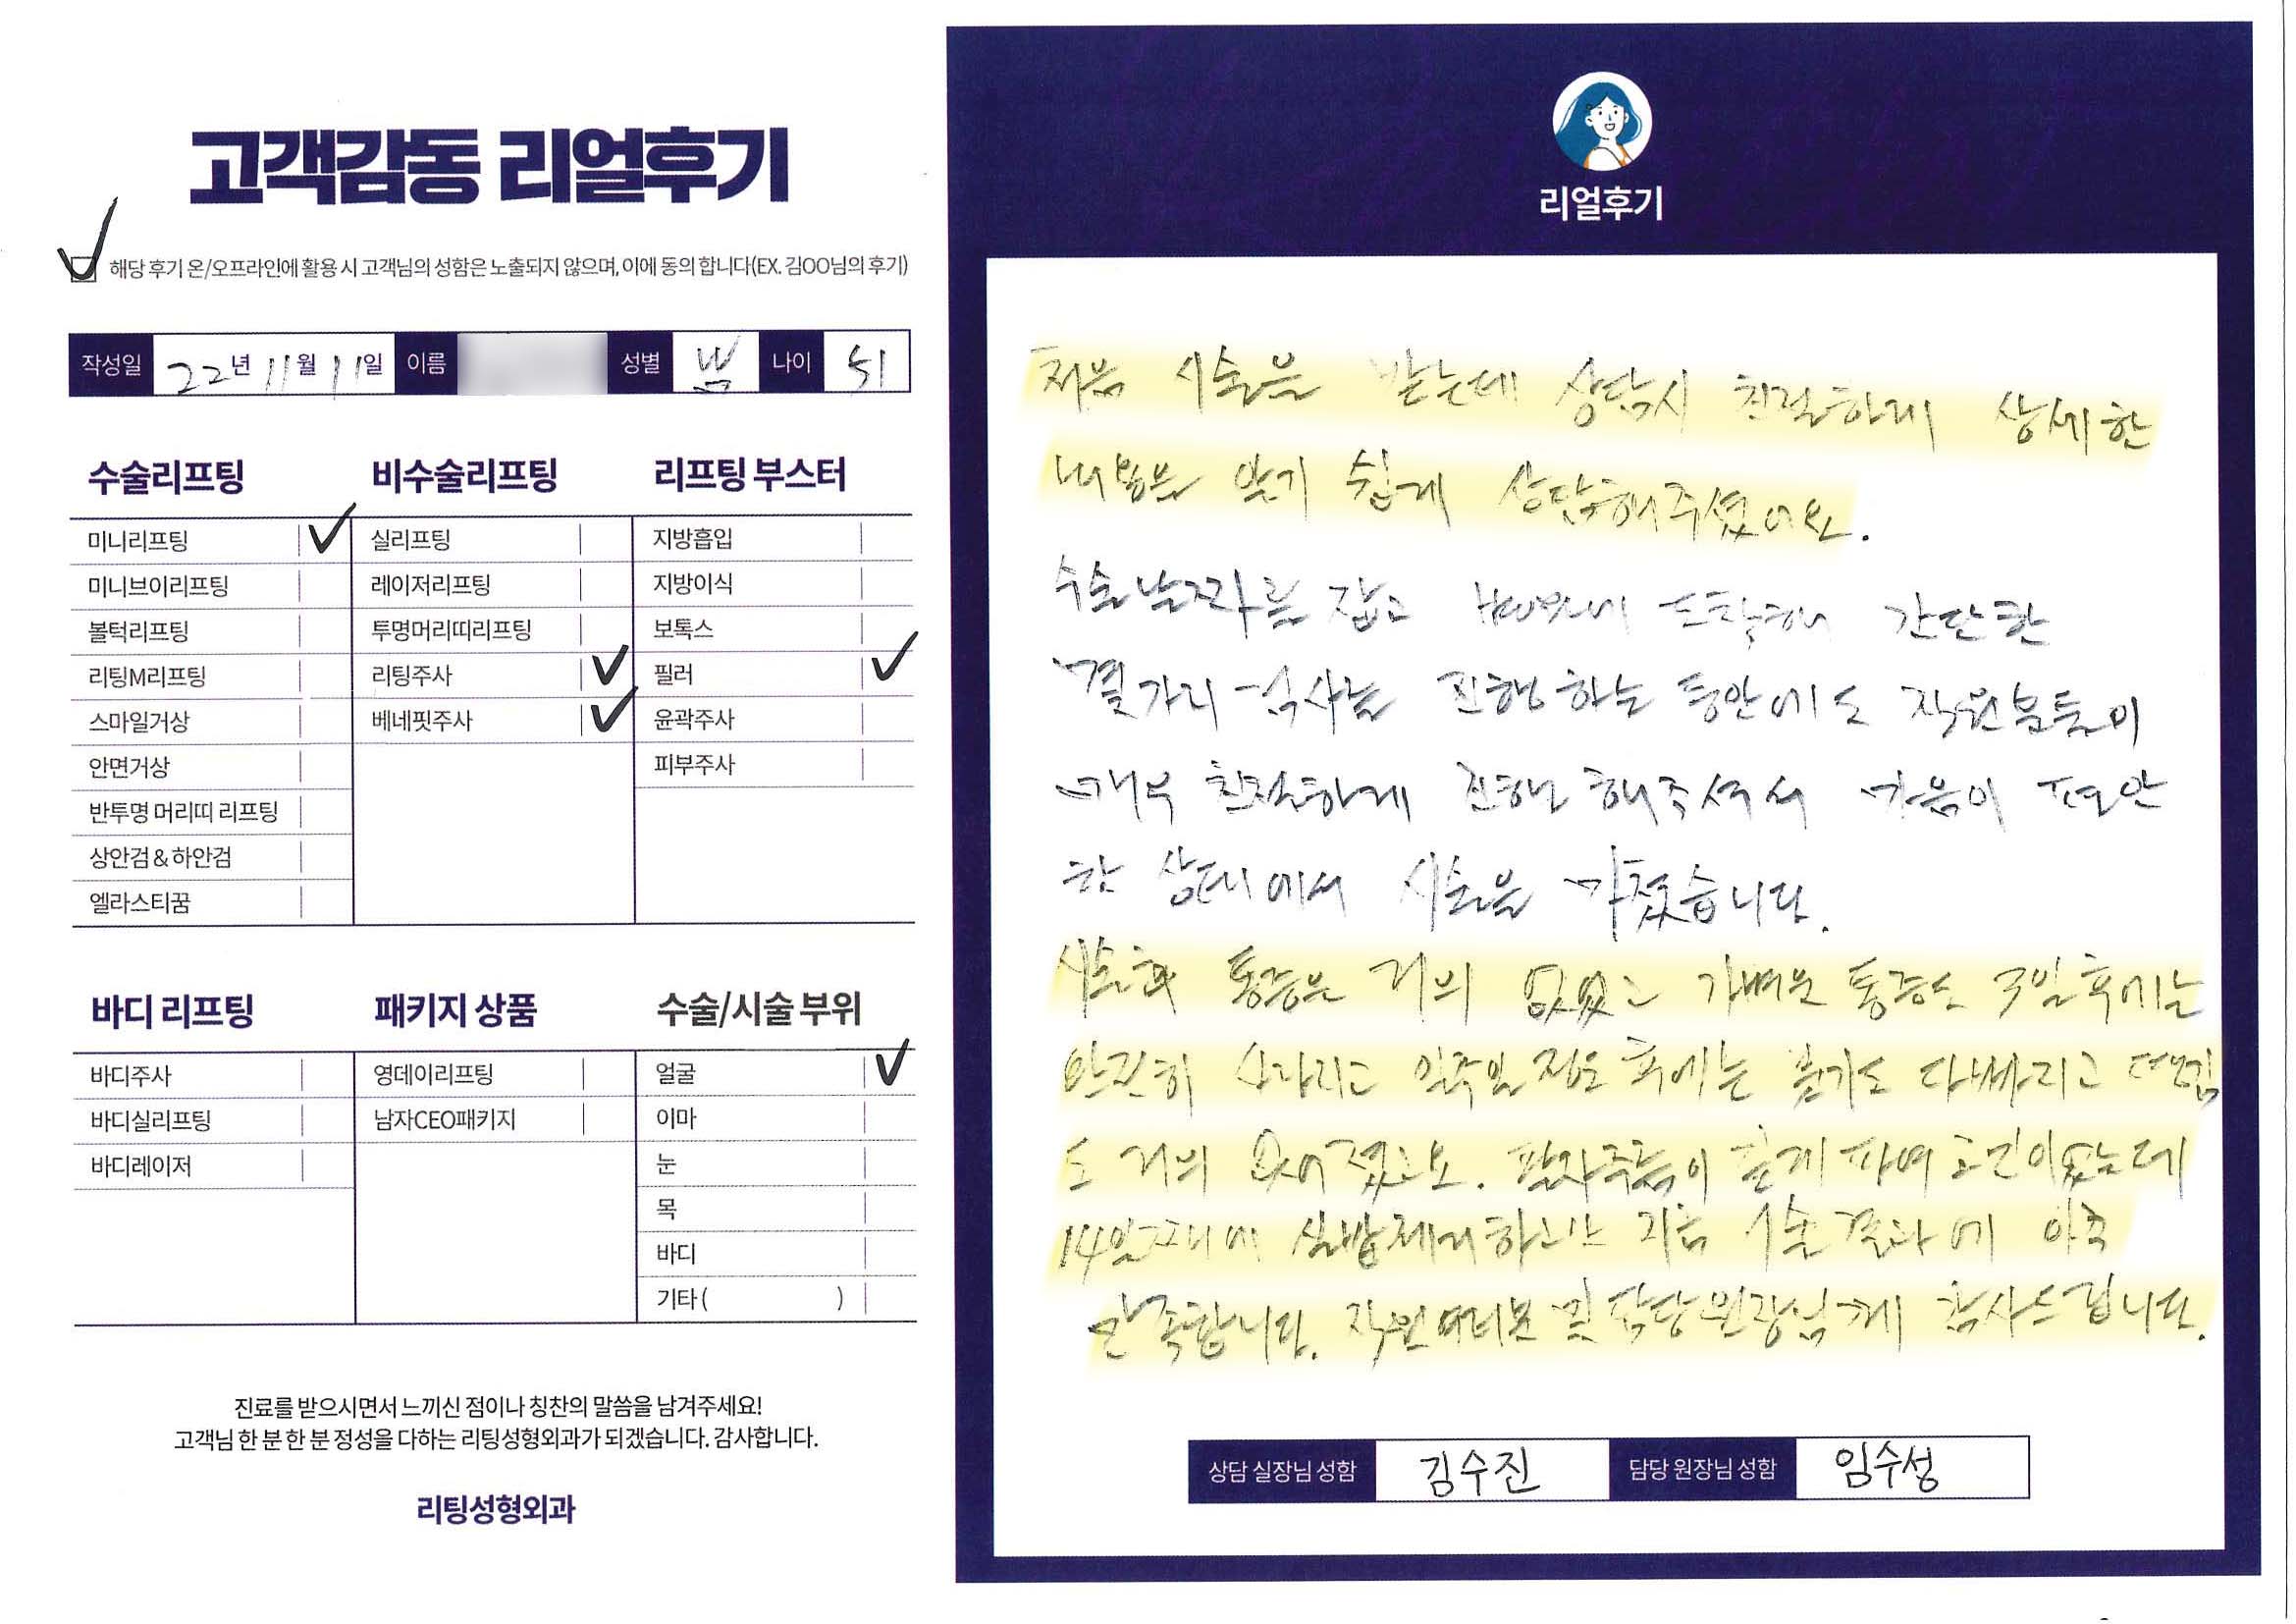 고객감동 리얼후기
해당 후기 온/오프라인에 활용 시 고객님의 성함은 노출되지 않으며, 이에 동의 합니다(EX. 김OO님의 후기)
작성일 22년 11월 11일 이름 성별 남 나이 51
수술리프팅
미니리프팅
미니브이리프팅
볼턱리프팅
리팅M리프팅
스마일거상
안면거상
반투명 머리띠 리프팅
상안검 & 하안검
엘라스티꿈
비수술리프팅
실리프팅
레이저리프팅
투명머리띠리프팅
리팅주사
베네핏주사
리프팅 부스터
지방흡입
지방이식
보톡스
필러
윤곽주사
피부주사
바디 리프팅
바디주사
바디실리프팅
바디레이저
패키지 상품
영데이리프팅
남자CEO패키지
수술/시술 부위
얼굴
이마
눈
목
바디
기타 ( )
진료를 받으시면서 느끼신 점이나 칭찬의 말씀을 남겨주세요!
고객님 한 분 한 분 정성을 다하는 리팅성형외과가 되겠습니다. 감사합니다.
리팅성형외과
리얼후기
처음 시술을 받는데 상담시 친절하게 상세한
내용을 알기 쉽게 상담해주셨어요.
수술날짜를 잡고 병원에 도착해 간단한
몇가지 검사를 진행하는 동안에도 직원분들이
매우 친절하게 진행해주셔서 마음이 편안
한 상태에서 시술을 가졌습니다.
시술후 통증은 거의 없었고 가벼운 통증도 3일후에는
완전히 사라지고 일주일정도 후에는 붓기도 다빠지고 땡김
도 거의 없어졌고요. 팔자주름이 깊게 파여 고민이었는데
14일째에 실밥제거하고난 지금 시술결과에 아주
만족합니다. 직원여러분 및 담당원장님께 감사드립니다.
상담 실장님 성함 김수진 담당 원장님 성함 임수성